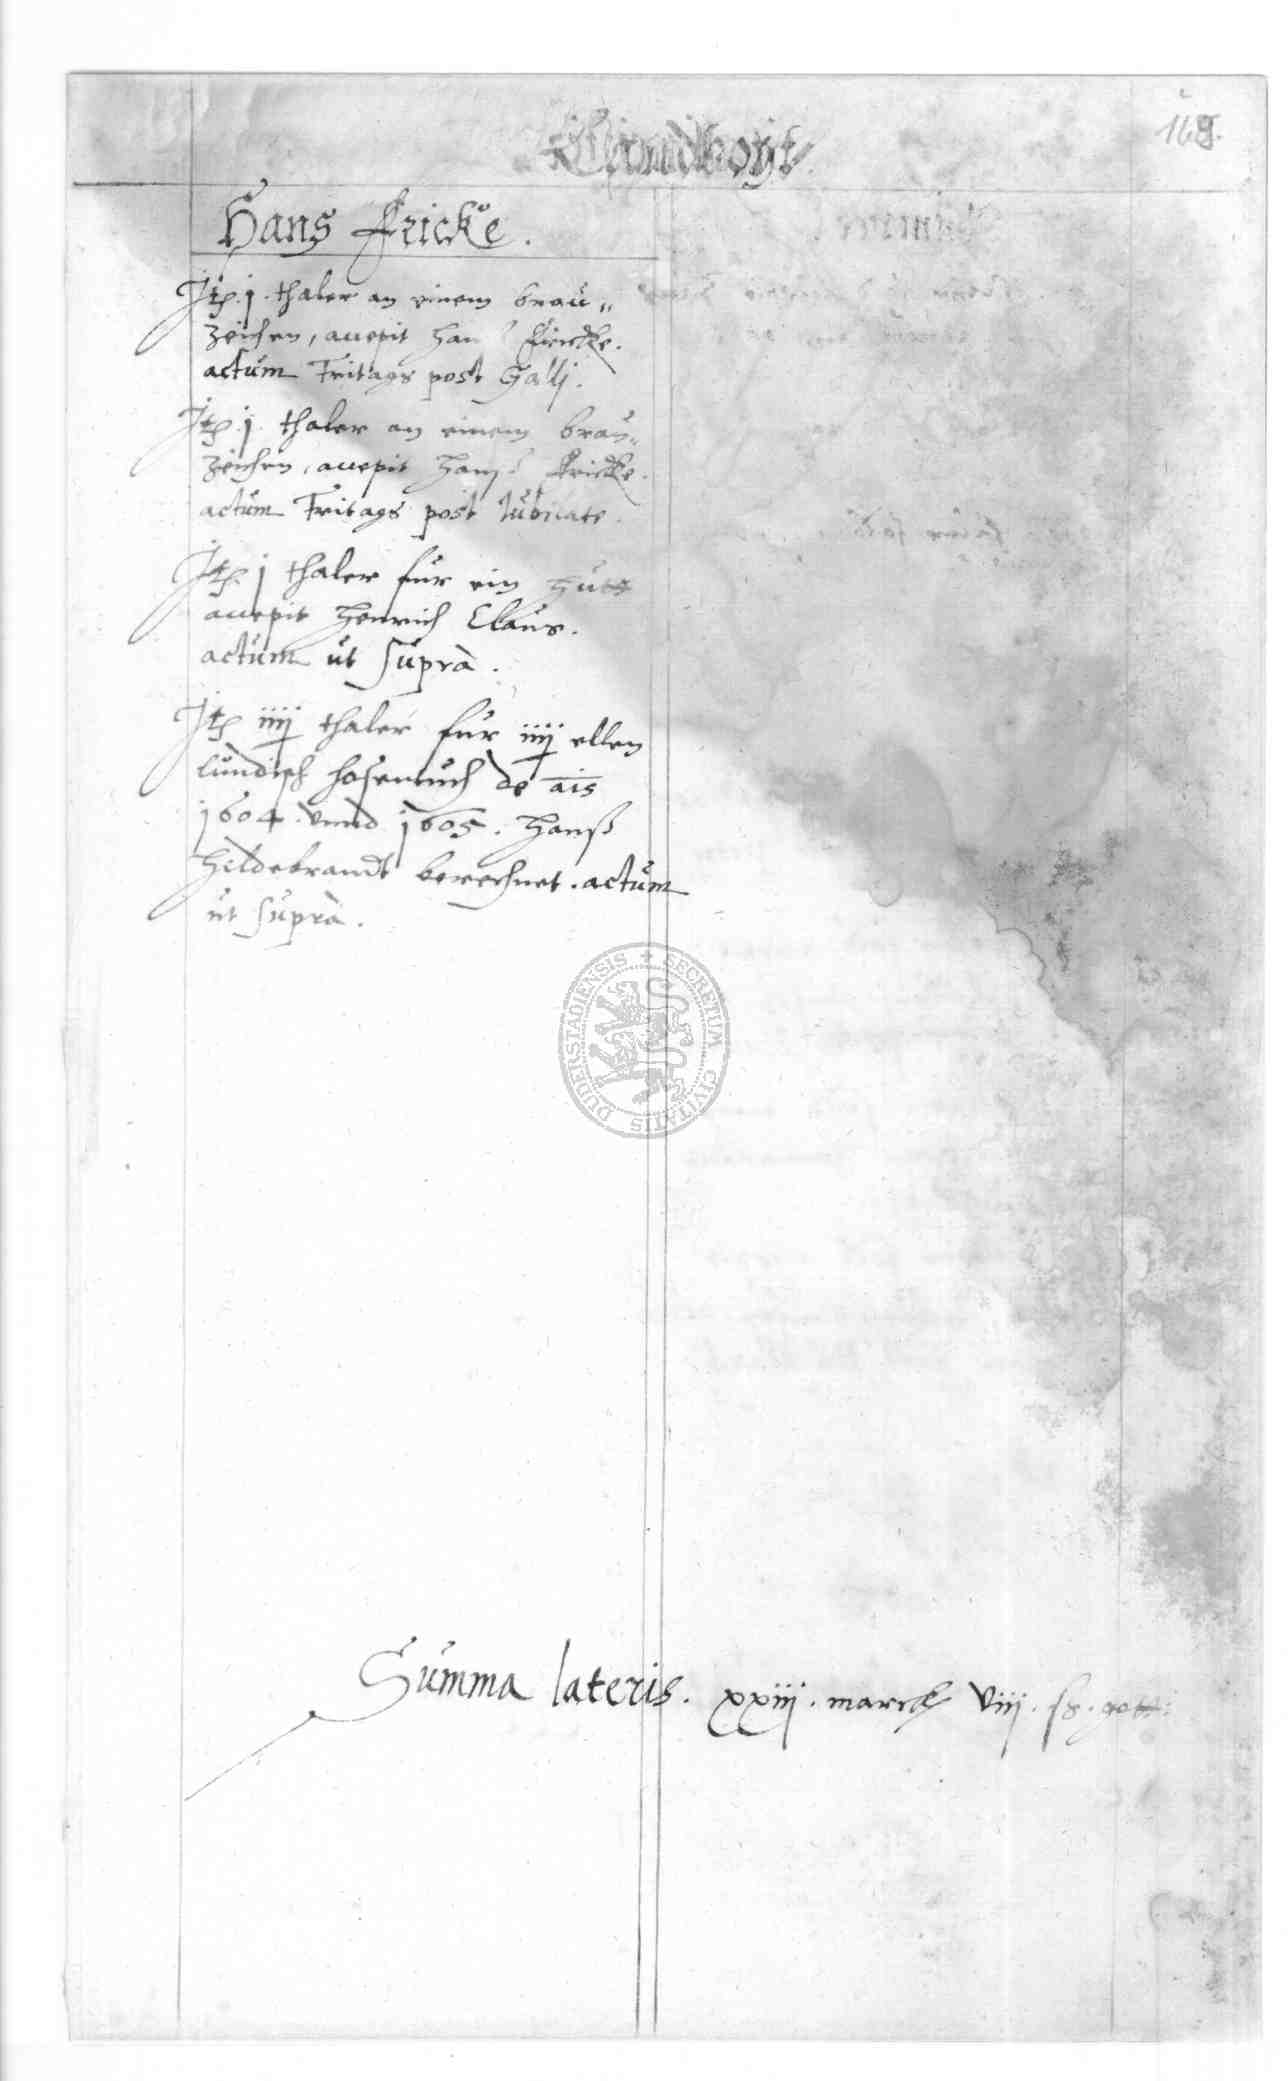 168.
Hans Fricke.
Itp. j. thaler an einem brau„
zeichen, accepit Hans Fricke.
actum Fritags post Galli.
Itp. j. thaler an einem brau„
zeichen, accepit Hanß Fricke.
actum Fritags post Jubilate.
Itp. j thaler fur ein hutt
accepit Henrich Claus.
actum ut supra.
Itp iiij thaler fur iiij ellen
lundisch hosentuch de a͞is
1604. vnnd 1605. Hanß
Hildebrandt berechnet. actum
ut supra.
SECRETUM CIVITATIS DUDERSTADIENSIS
Summa lateris. xxiij. marck viij. ß. gott: